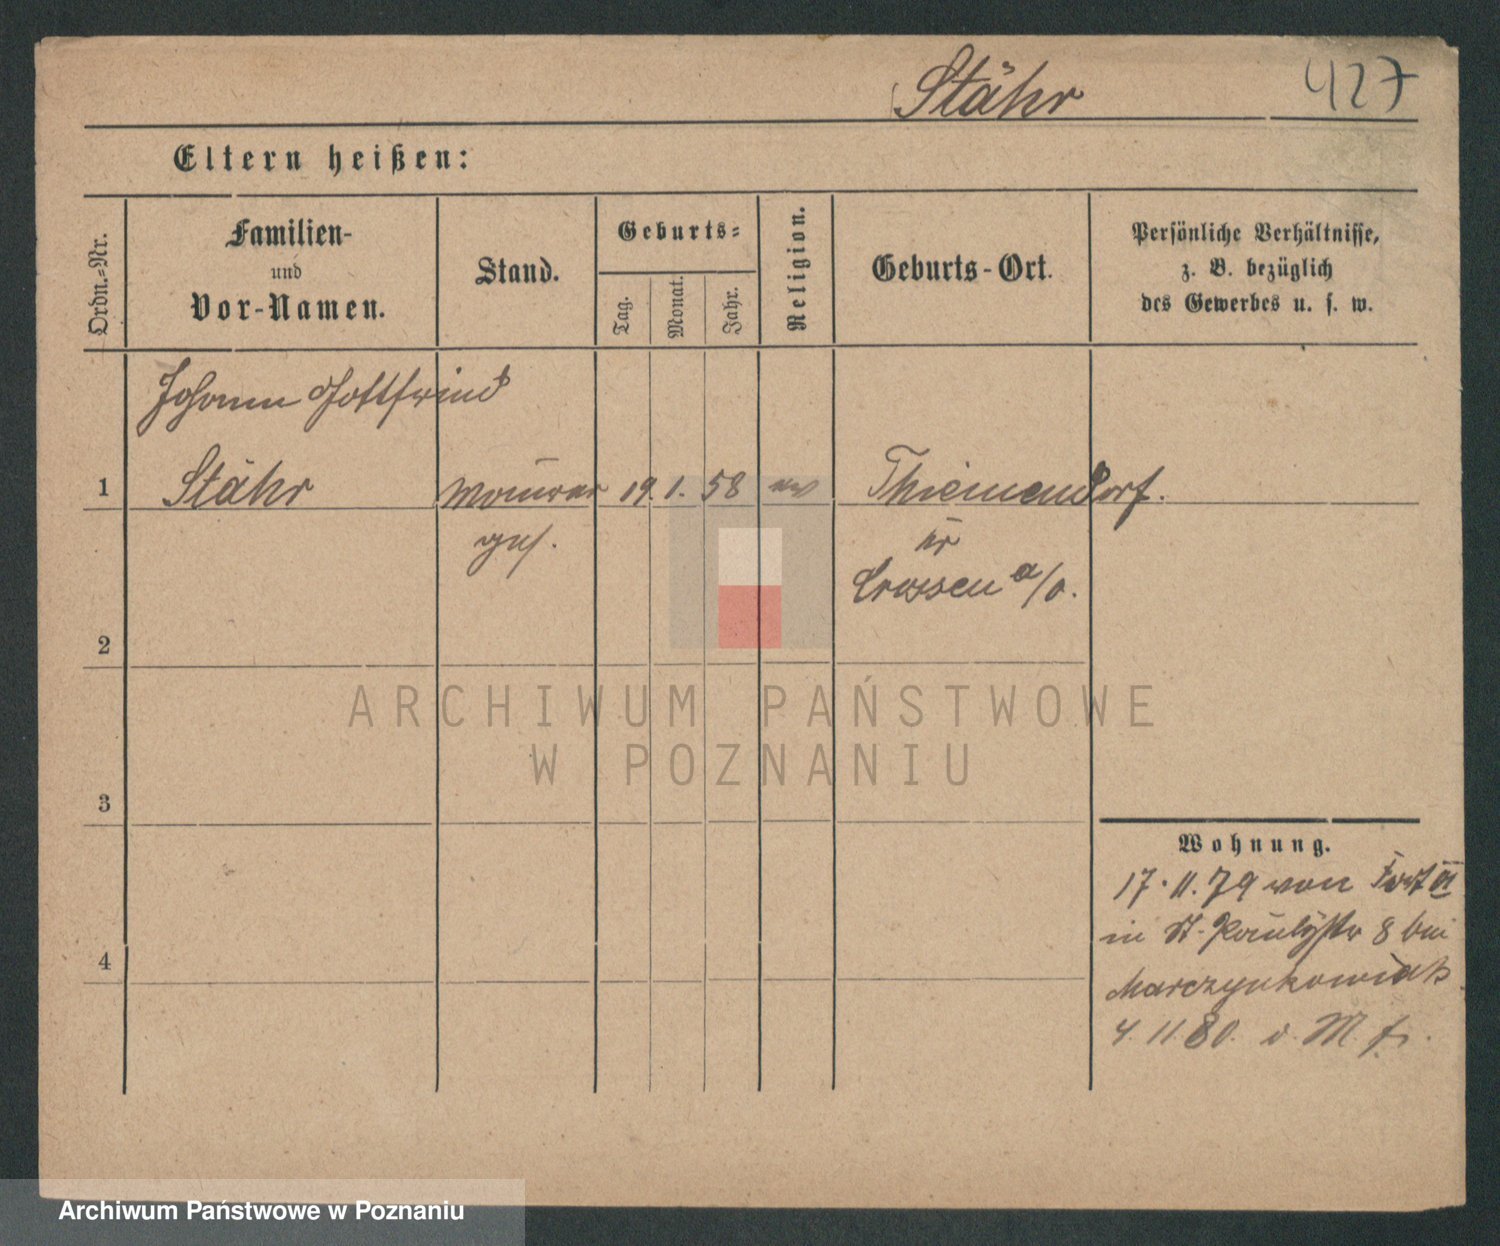 Stähr 427
Eltern heißen:
Ordn.=Nr.
Familien-
und
Vor-Namen.
Stand.
Geburts=
Tag.
Monat.
Jahr.
Religion.
Geburts-Ort.
Persönliche Verhältnisse,
z. B. bezüglich
des Gewerbes u. s. w.
Johann Gottfried
1 Stähr Maurer 19. 1. 58 ev Thiemendorf.
ges. Kr
Crossen a/O.
2
3
4
Wohnung.
17. 11. 79 von Fort VI
in St. Paulystr 8 bei
Marczynkowiak
4. 11 80. v. M.
ARCHIWUM PAŃSTWOWE
W POZNANIU
Archiwum Państwowe w Poznaniu